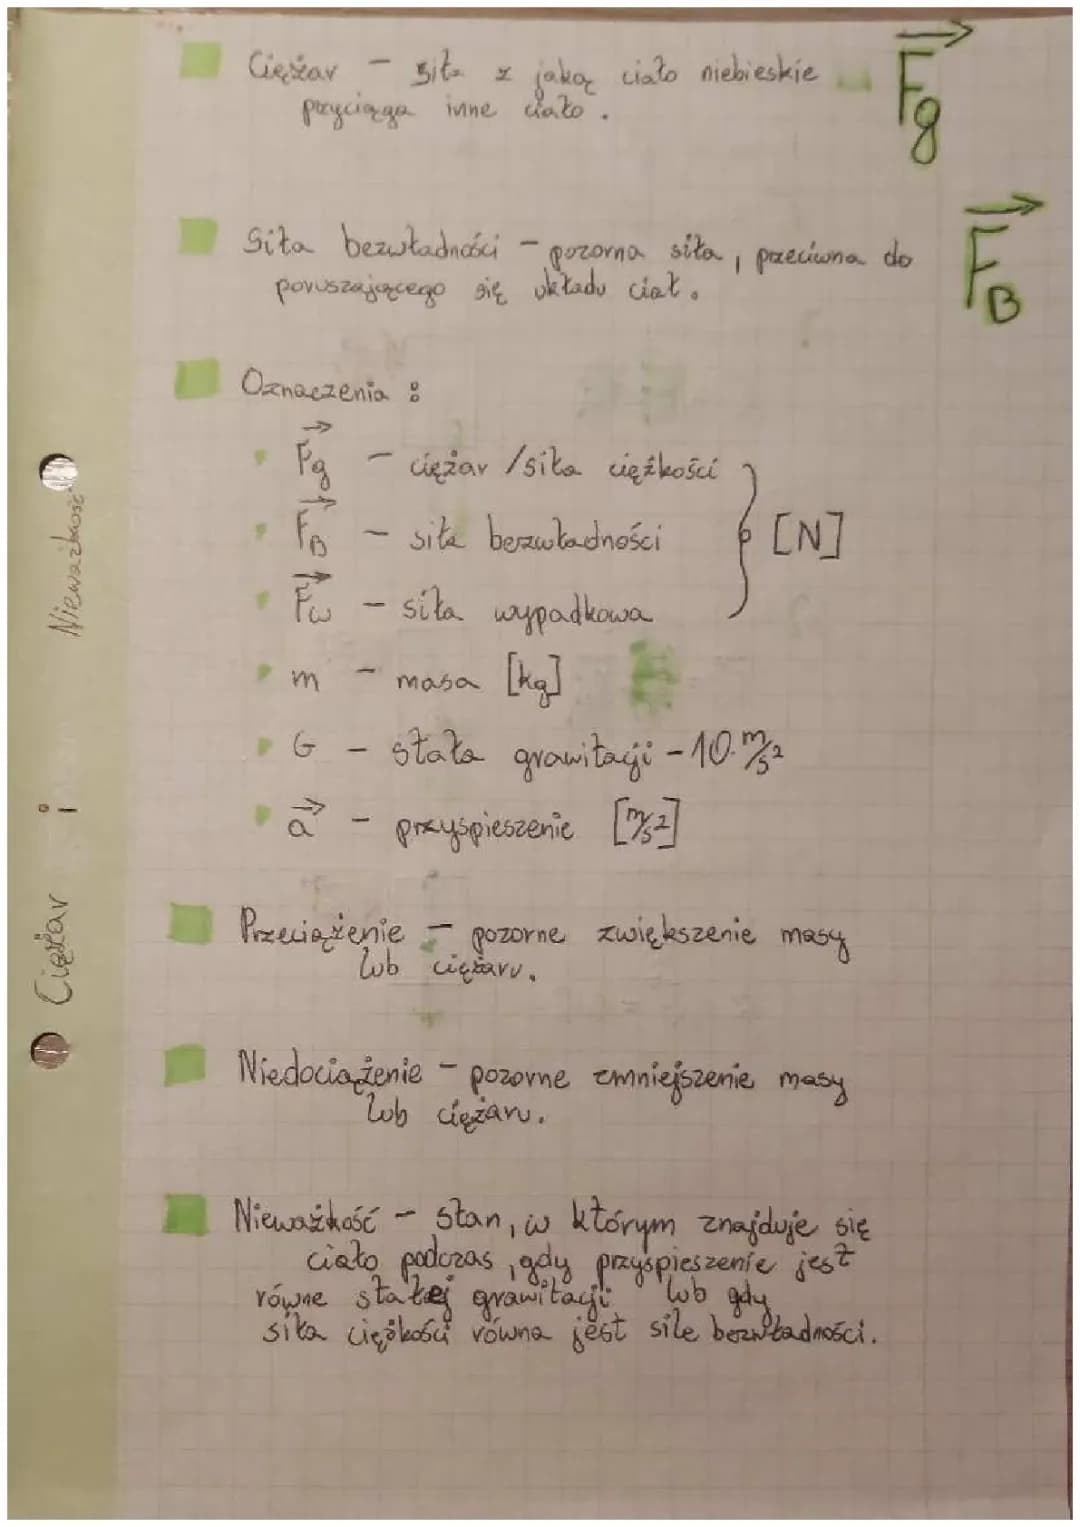 Ciężar i Nieważkość
Ciężar - siła z jaką ciało niebieskie
przyciąga inne ciało.
Fg
Siła bezwładności - pozorna siła, przeciwna do
poruszającego się układu ciał.
FB
Oznaczenia:
Fg - ciężar / siła ciężkości
FB - siła bezwładności
[N]
Fw - siła wypadkowa
m - masa [kg]
G - stała grawitacji - 10 m/s²
a - przyśpieszenie [m/s²]
Przeciążenie - pozorne zwiększenie masy
lub ciężaru.
Niedociążenie - pozorne zmniejszenie masy
lub ciężaru.
Nieważkość - stan, w którym znajduje się
ciało podczas, gdy przyśpieszenie jest
równe stałej grawitacji lub gdy
siła ciężkości równa jest sile bezwładności.